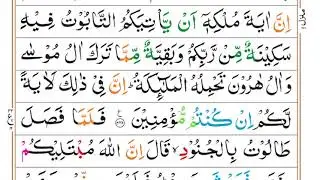 اِنَّ اٰيَةَ مُلْكِهٖۤ اَنْ يَّاْتِيَكُمُ التَّابُوْتُ فِيْهِ
سَكِيْنَةٌ مِّنْ رَّبِّكُمْ وَبَقِيَّةٌ مِّمَّا تَرَكَ اٰلُ مُوْسٰى
وَاٰلُ هٰرُوْنَ تَحْمِلُهُ الْمَلٰٓئِكَةُ ؕ اِنَّ فِيْ ذٰلِكَ لَاٰيَةً
لَّكُمْ اِنْ كُنْتُمْ مُّؤْمِنِيْنَ ۝ فَلَمَّا فَصَلَ
طَالُوْتُ بِالْجُنُوْدِ ۙ قَالَ اِنَّ اللّٰهَ مُبْتَلِيْكُمْ